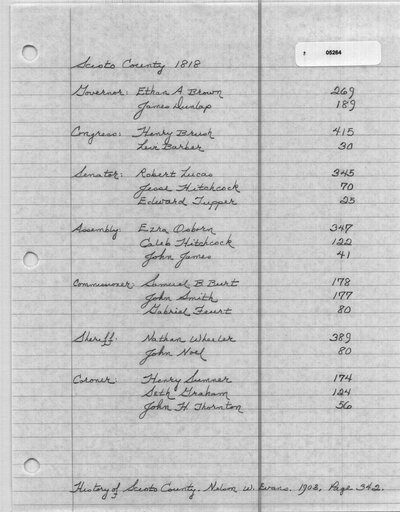 05264
Scioto County 1818
Governor: Ethan A Brown 269
James Dunlap 189
Congress: Henry Brush 415
Levi Barber 30
Senator: Robert Lucas 345
Jesse Hitchcock 70
Edward Tupper 25
Assembly: Ezra Osborn 347
Caleb Hitchcock 122
John James 41
Commissioner: Samuel B Burt 178
John Smith 177
Gabriel Feurt 80
Sheriff: Nathan Wheeler 389
John Noel 80
Coroner: Henry Sumner 174
Seth Graham 124
John H Thornton 56
History of Scioto County. Nelson W. Evans. 1903. Page 342.